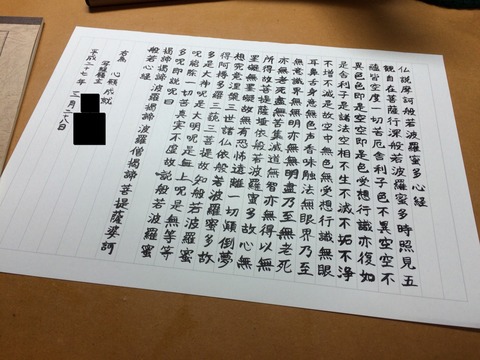 仏説摩訶般若波羅蜜多心経
観自在菩薩行深般若波羅蜜多時照見五
蘊皆空度一切苦厄舎利子色不異空空不
異色色即是空空即是色受想行識亦復如
是舎利子是諸法空相不生不滅不垢不浄
不増不減是故空中無色無受想行識無眼
耳鼻舌身意無色声香味触法無眼界乃至
無意識界無無明亦無無明盡乃至無老死
亦無老死盡無苦集滅道無智亦無得以無
所得故菩提薩埵依般若波羅蜜多故心無
罣礙無罣礙故無有恐怖遠離一切顛倒夢
想究竟涅槃三世諸仏依般若波羅蜜多故
得阿耨多羅三藐三菩提故知般若波羅蜜
多是大神呪是大明呪是無上呪是無等等
呪能除一切苦真実不虚故説般若波羅蜜
多呪即説呪曰
揭諦揭諦波羅揭諦波羅僧揭諦菩提薩婆訶
般若心経
右為 心願成就
写経願主
三月二八日